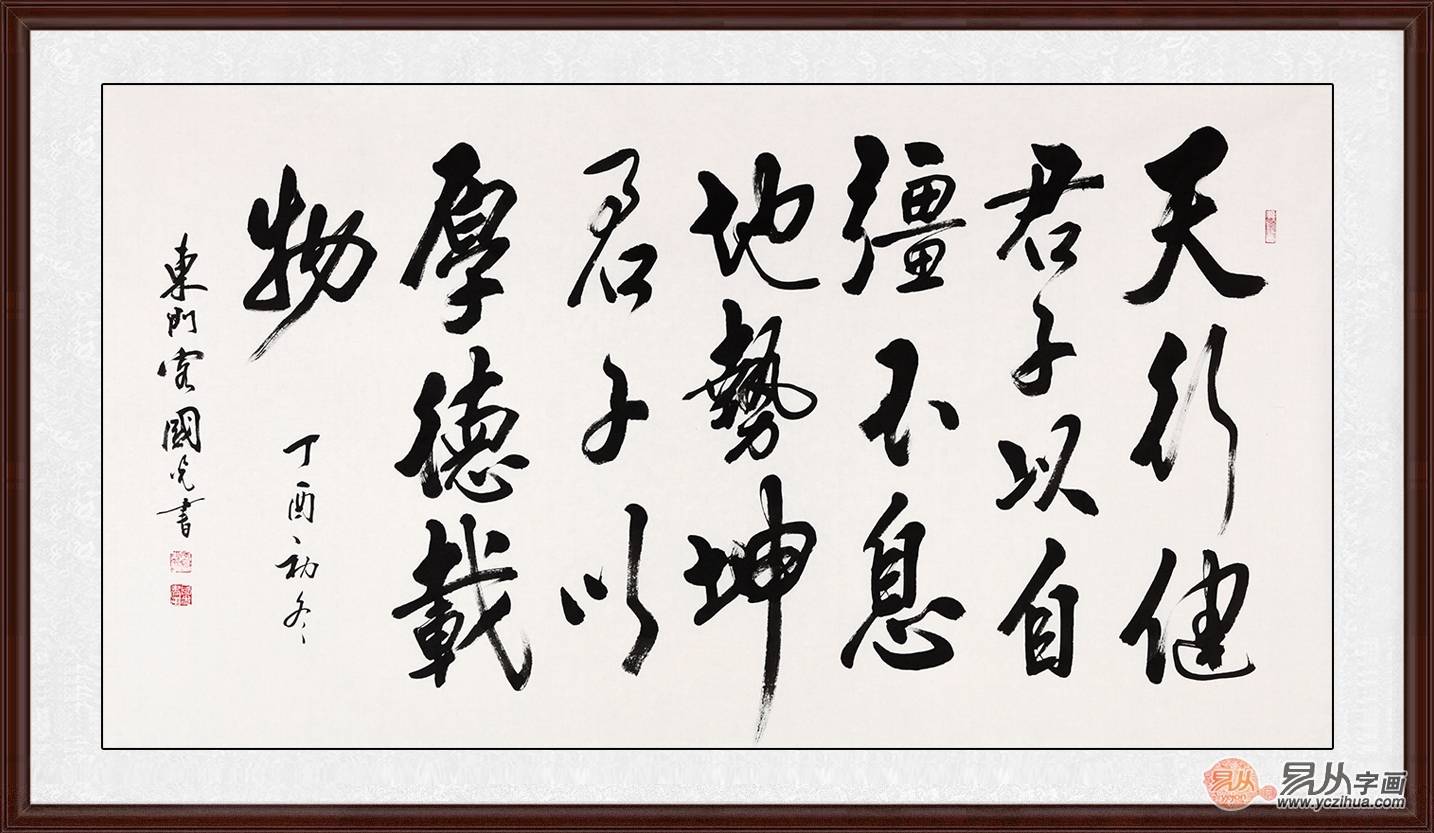 天行健
君子以自
彊不息
地勢坤
君子以
厚德載
物
丁酉初冬
東門客國光書
易从
ycion
易从字画
www.yczihua.com